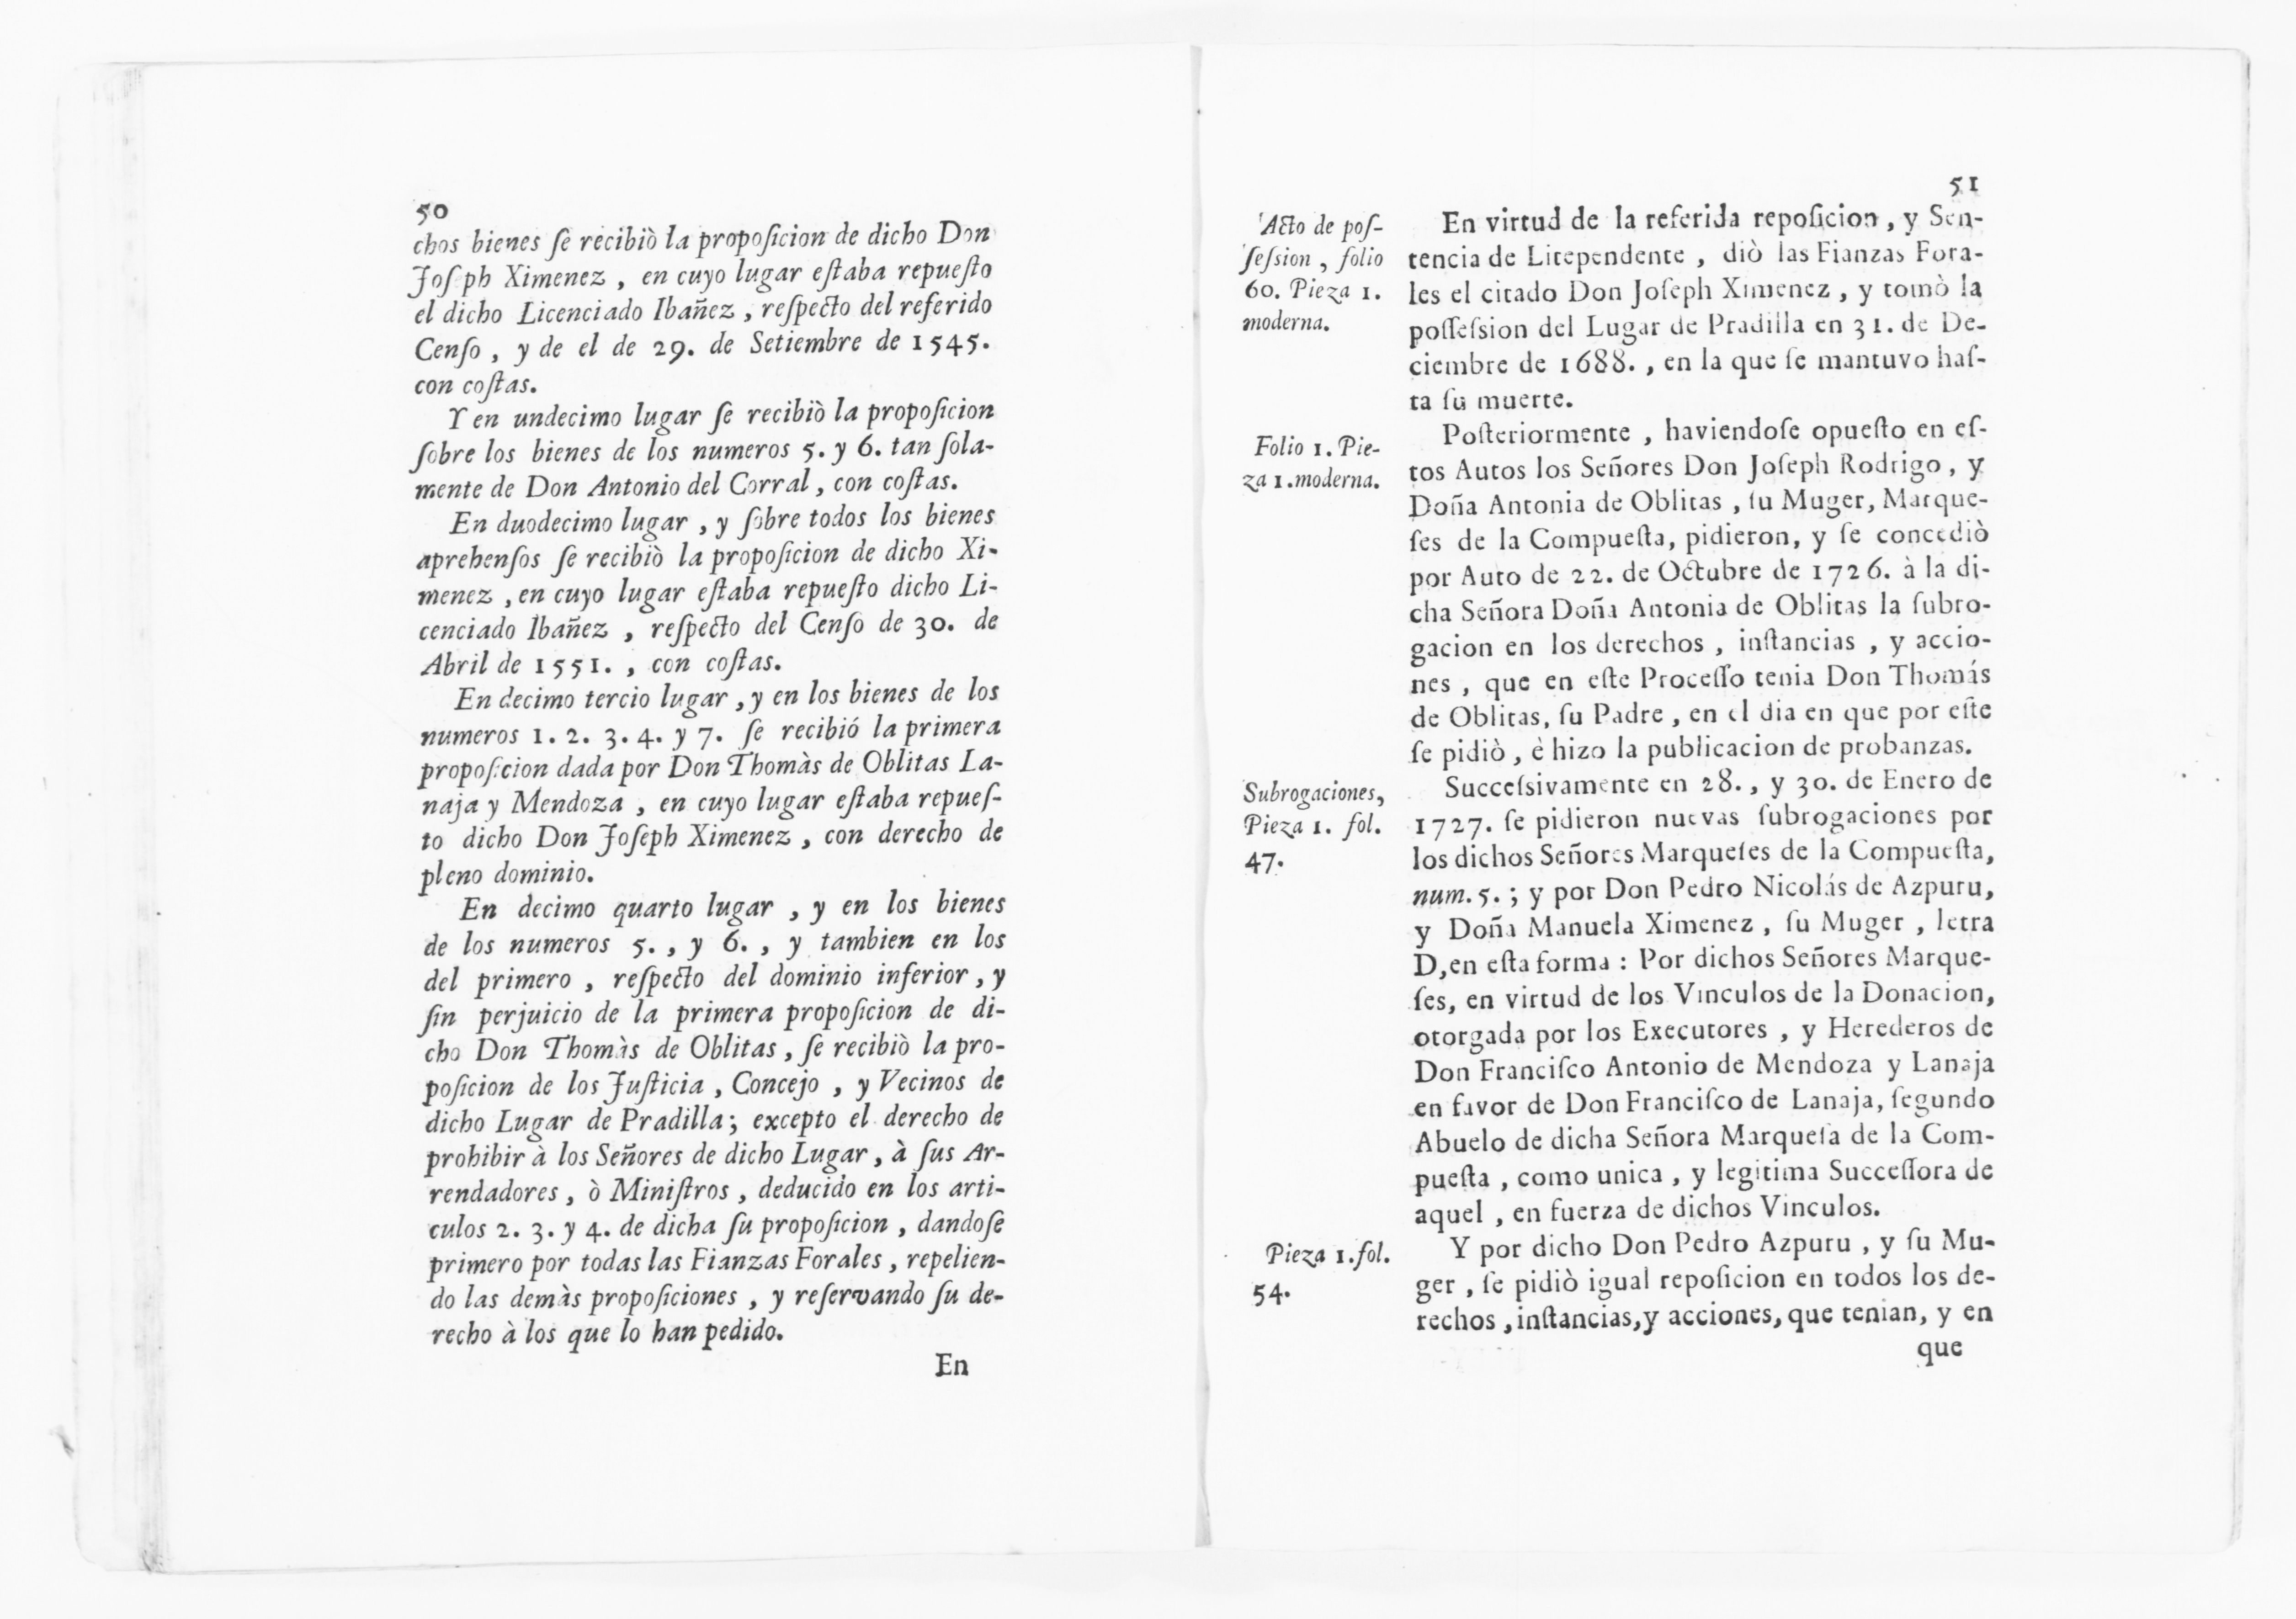 50
chos bienes ſe recibiò la propoſicion de dicho Don
Joſ ph Ximenez , en cuyo lugar eſtaba repueſto
el dicho Licenciado Ibañez , reſpecto del referido
Cenſo , y de el de 29. de Setiembre de 1545.
con coſtas.
Y en undecimo lugar ſe recibiò la propoſicion
ſobre los bienes de los numeros 5. y 6. tan ſola-
mente de Don Antonio del Corral , con coſtas.
En duodecimo lugar , y ſobre todos los bienes
aprehenſos ſe recibiò la propoſicion de dicho Xi-
menez , en cuyo lugar eſtaba repueſto dicho Li-
cenciado Ibañez , reſpecto del Cenſo de 30. de
Abril de 1551. , con coſtas.
En decimo tercio lugar , y en los bienes de los
numeros 1. 2. 3. 4. y 7. ſe recibió la primera
propoſicion dada por Don Thomàs de Oblitas La-
naja y Mendoza , en cuyo lugar eſtaba repueſ-
to dicho Don Joſeph Ximenez , con derecho de
pleno dominio.
En decimo quarto lugar , y en los bienes
de los numeros 5. , y 6. , y tambien en los
del primero , reſpecto del dominio inferior , y
ſin perjuicio de la primera propoſicion de di-
cho Don Thomàs de Oblitas , ſe recibiò la pro-
poſicion de los Juſticia , Concejo , y Vecinos de
dicho Lugar de Pradilla; excepto el derecho de
prohibir à los Señores de dicho Lugar , à ſus Ar-
rendadores , ò Miniſtros , deducido en los arti-
culos 2. 3. y 4. de dicha ſu propoſicion , dandoſe
primero por todas las Fianzas Forales , repelien-
do las demàs propoſiciones , y reſervando ſu de-
recho à los que lo han pedido.
En
51
Acto de poſ-
ſeſsion , folio
60. Pieza 1.
moderna.
En virtud de la referida repoſicion , y Sen-
tencia de Litependente , diò las Fianzas Fora-
les el citado Don Joſeph Ximenez , y tomò la
poſſeſsion del Lugar de Pradilla en 31. de De-
ciembre de 1688. , en la que ſe mantuvo haſ-
ta ſu muerte.
Folio 1. Pie-
za 1.moderna.
Poſteriormente , haviendoſe opueſto en eſ-
tos Autos los Señores Don Joſeph Rodrigo , y
Doña Antonia de Oblitas , ſu Muger, Marque-
ſes de la Compueſta, pidieron, y ſe concediò
por Auto de 22. de Octubre de 1726. à la di-
cha Señora Doña Antonia de Oblitas la ſubro-
gacion en los derechos , inſtancias , y accio-
nes , que en eſte Proceſſo tenia Don Thomás
de Oblitas, ſu Padre , en el dia en que por eſte
ſe pidiò , è hizo la publicacion de probanzas.
Subrogaciones,
Pieza 1. fol.
47.
Succeſsivamente en 28. , y 30. de Enero de
1727. ſe pidieron nuevas ſubrogaciones por
los dichos Señores Marqueſes de la Compueſta,
num. 5. ; y por Don Pedro Nicolás de Azpuru,
y Doña Manuela Ximenez , ſu Muger , letra
D,en eſta forma : Por dichos Señores Marque-
ſes, en virtud de los Vinculos de la Donacion,
otorgada por los Executores , y Herederos de
Don Franciſco Antonio de Mendoza y Lanaja
en favor de Don Franciſco de Lanaja, ſegundo
Abuelo de dicha Señora Marqueſa de la Com-
pueſta , como unica , y legitima Succeſſora de
aquel , en fuerza de dichos Vinculos.
Pieza 1.fol.
54.
Y por dicho Don Pedro Azpuru , y ſu Mu-
ger , ſe pidiò igual repoſicion en todos los de-
rechos , inſtancias,y acciones, que tenian, y en
que